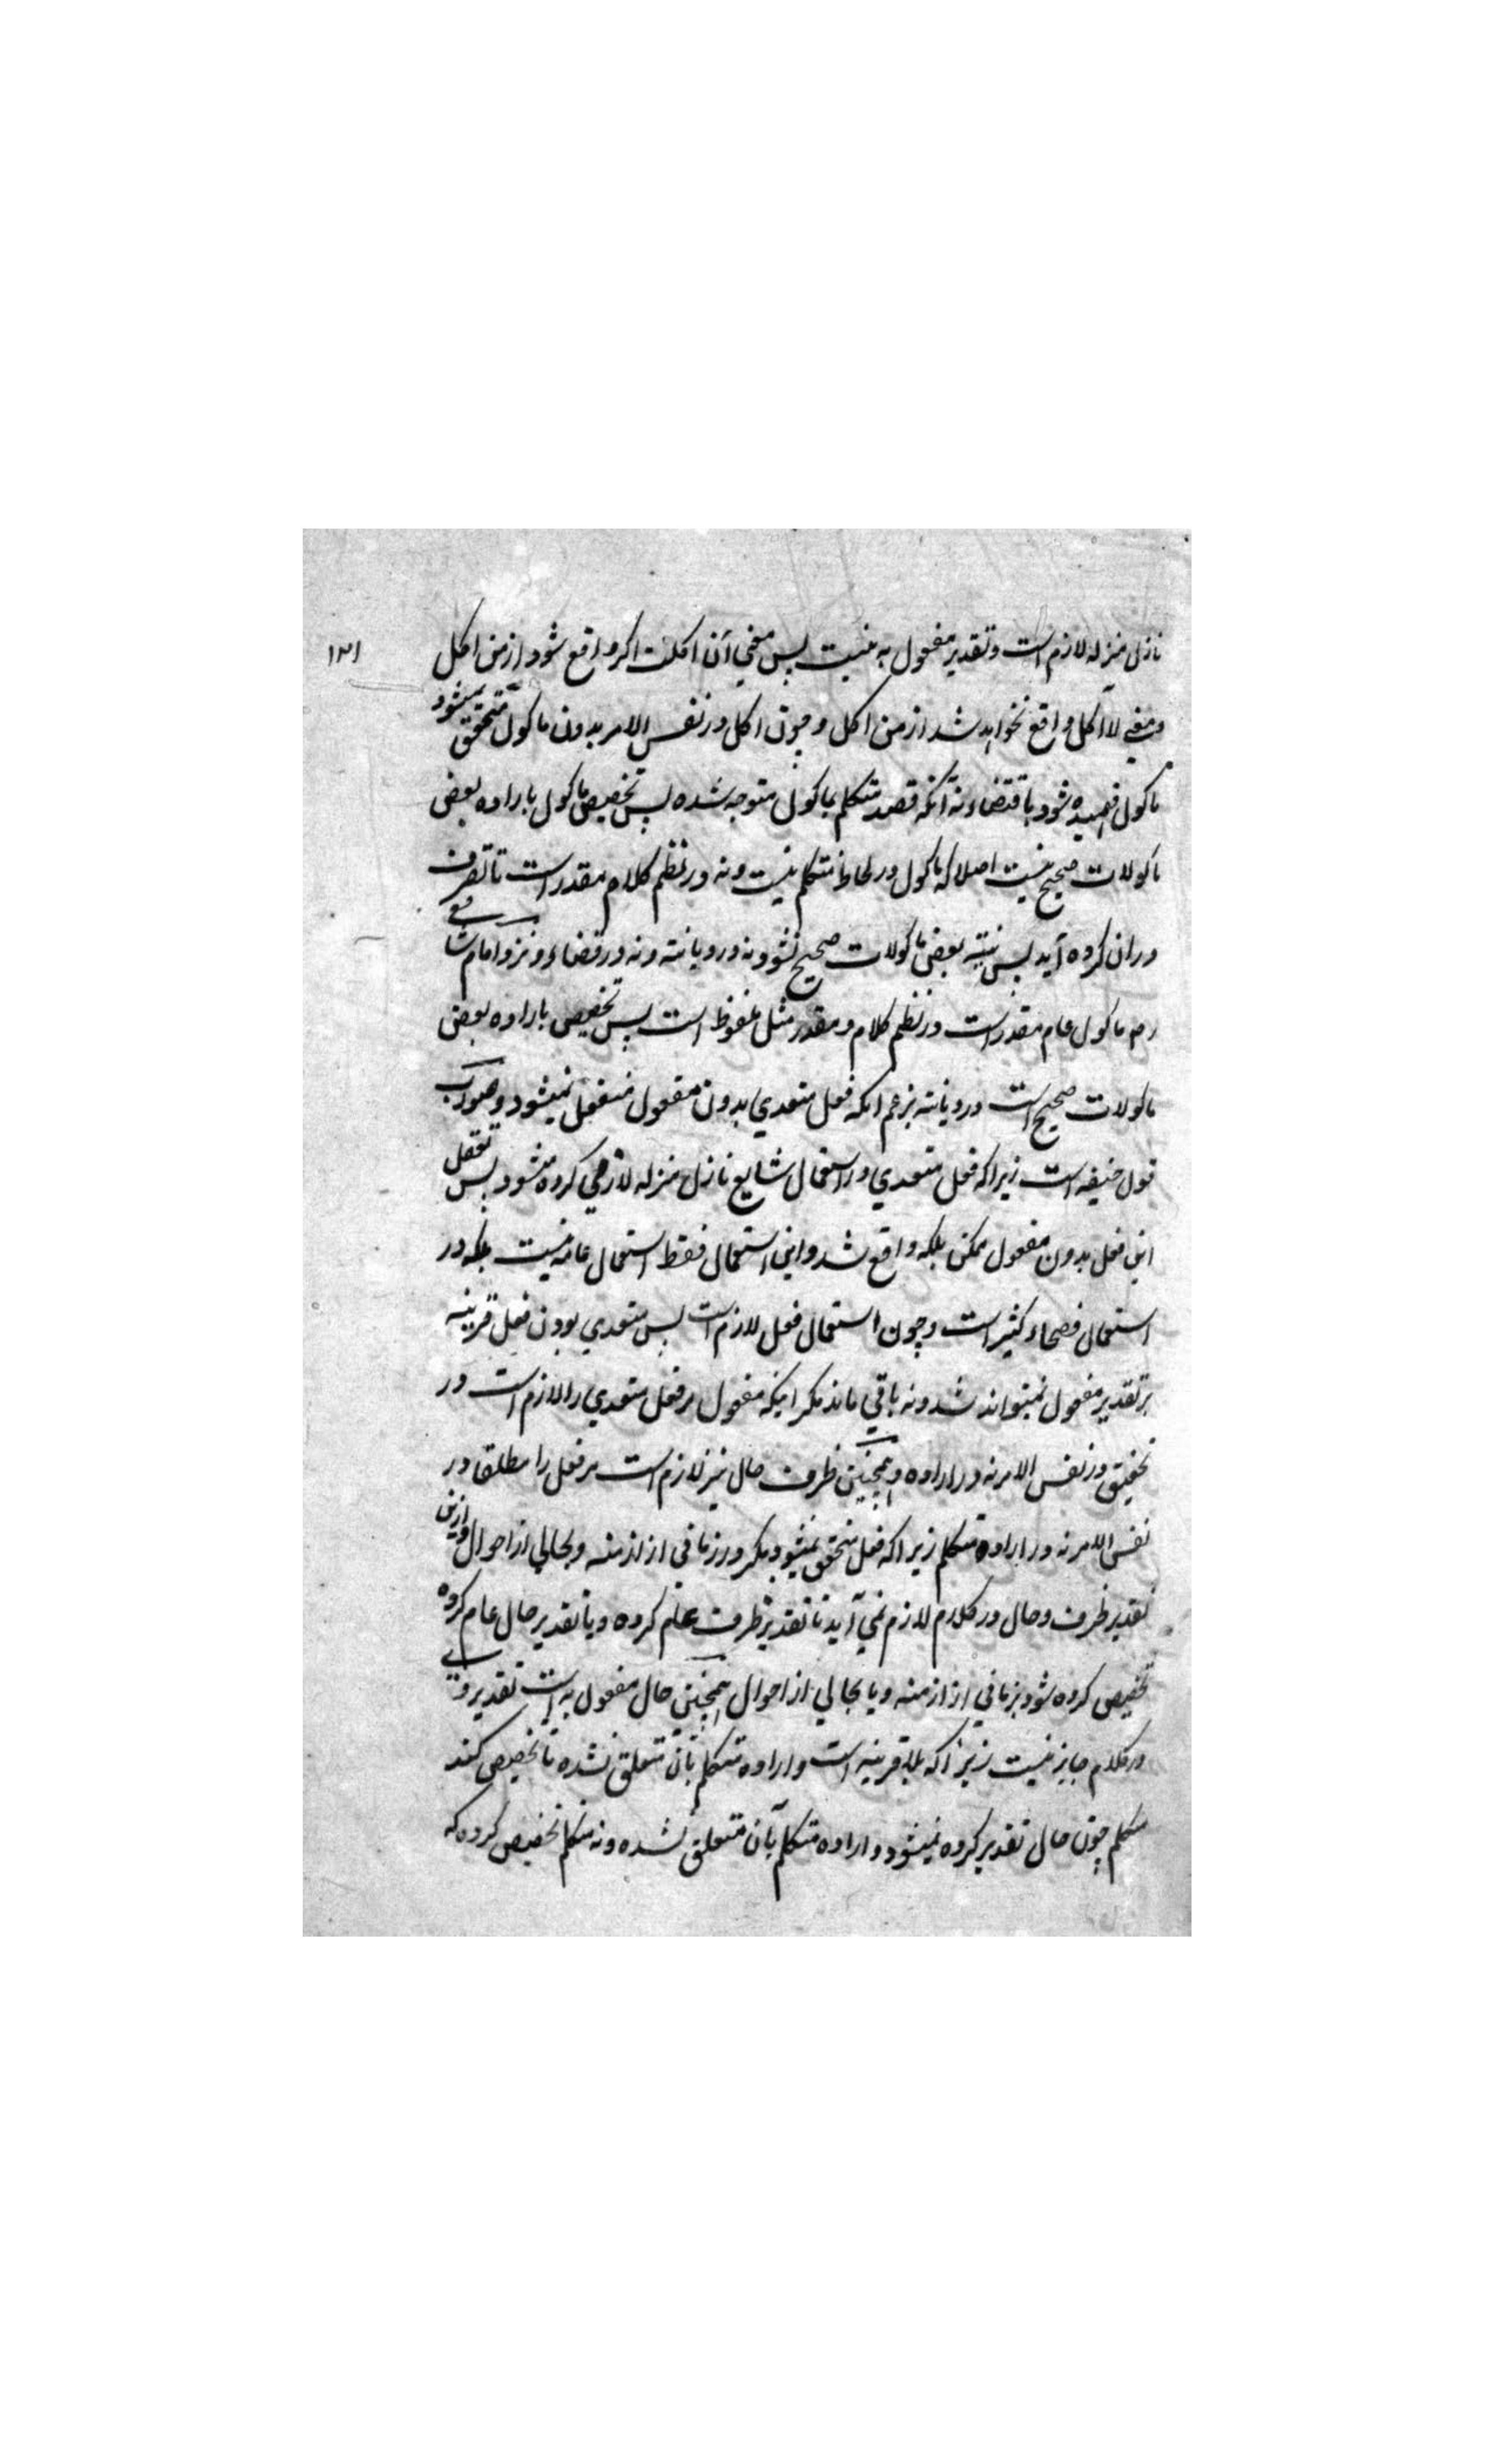 نازل منزله لازم است و تقدیر مفعول به نیست پس معنی ان اکلت اکر واقع شود از من اکل
۱۳۱
و معنی لا آکل واقع نخواهد شد از من اکل و چون اکل در نفس الامر بدون ماکول متحقق نمیشود
ماکول فهمیده شود باقتضاء نه آنکه قصد متکلم بماکول متوجه شده پس تخصیص ماکول باراده بعض
ماکولات صحیح نیست اصلا که ماکول در لحاظ متکلم نیست و نه در نظم کلام مقدر است تا تصرف
دران کرده آید پس نیته بعض ماکولات صحیح نشود نه در دیانته و نه در قضاء و نزد امام شافعی
رح ماکول عام مقدر است در نظم کلام و مقدر مثل ملفوظ است پس تخصیص باراده بعض
ماکولات صحیح است در دیانته بزعم انکه فعل متعدي بدون مفعول متعقل نمیشود و صواب
قول حنیفه است زیراکه فعل متعدي در استعمال شایع نازل منزله لازمي کرده میشود پس تعقل
این فعل بدون مفعول ممکن بلکه واقع شد و این استعمال فقط استعمال عامه نیست بلکه در
استعمال فصحاء کثیر است و چون استعمال فعل لازم است پس متعدي بودن فعل قرینه
بر تقدیر مفعول نمیتواند شد و نه باقي ماند مکر اینکه مفعول مر فعل متعدي را لازم است در
تحقیق در نفس الامر نه در اراده و همچنین ظرف حال نیز لازم است مر فعل را مطلقا در
نفس الامر نه در اراده متکلم زیراکه فعل متحقق نمیشود مکر در زماني از ازمنه و بحالي از احوال و ازین
تقدیر ظرف و حال در کلام لازم نمي آید تا تقدیر ظرف عام کرده و یا تقدیر حال عام کرده
تخصیص کرده شود بزماني از ازمنه و یا بحالي از احوال همچنین حال مفعول به است تقدیر وی
در کلام جایز نیست زیراکه بلا قرینه است و اراده متکلم بآن متعلق نشده تا تخصیص کند
متکلم چون حال تقدیر کرده نمیشود و اراده متکلم بآن متعلق نشده و نه متکلم تخصیص کرده که